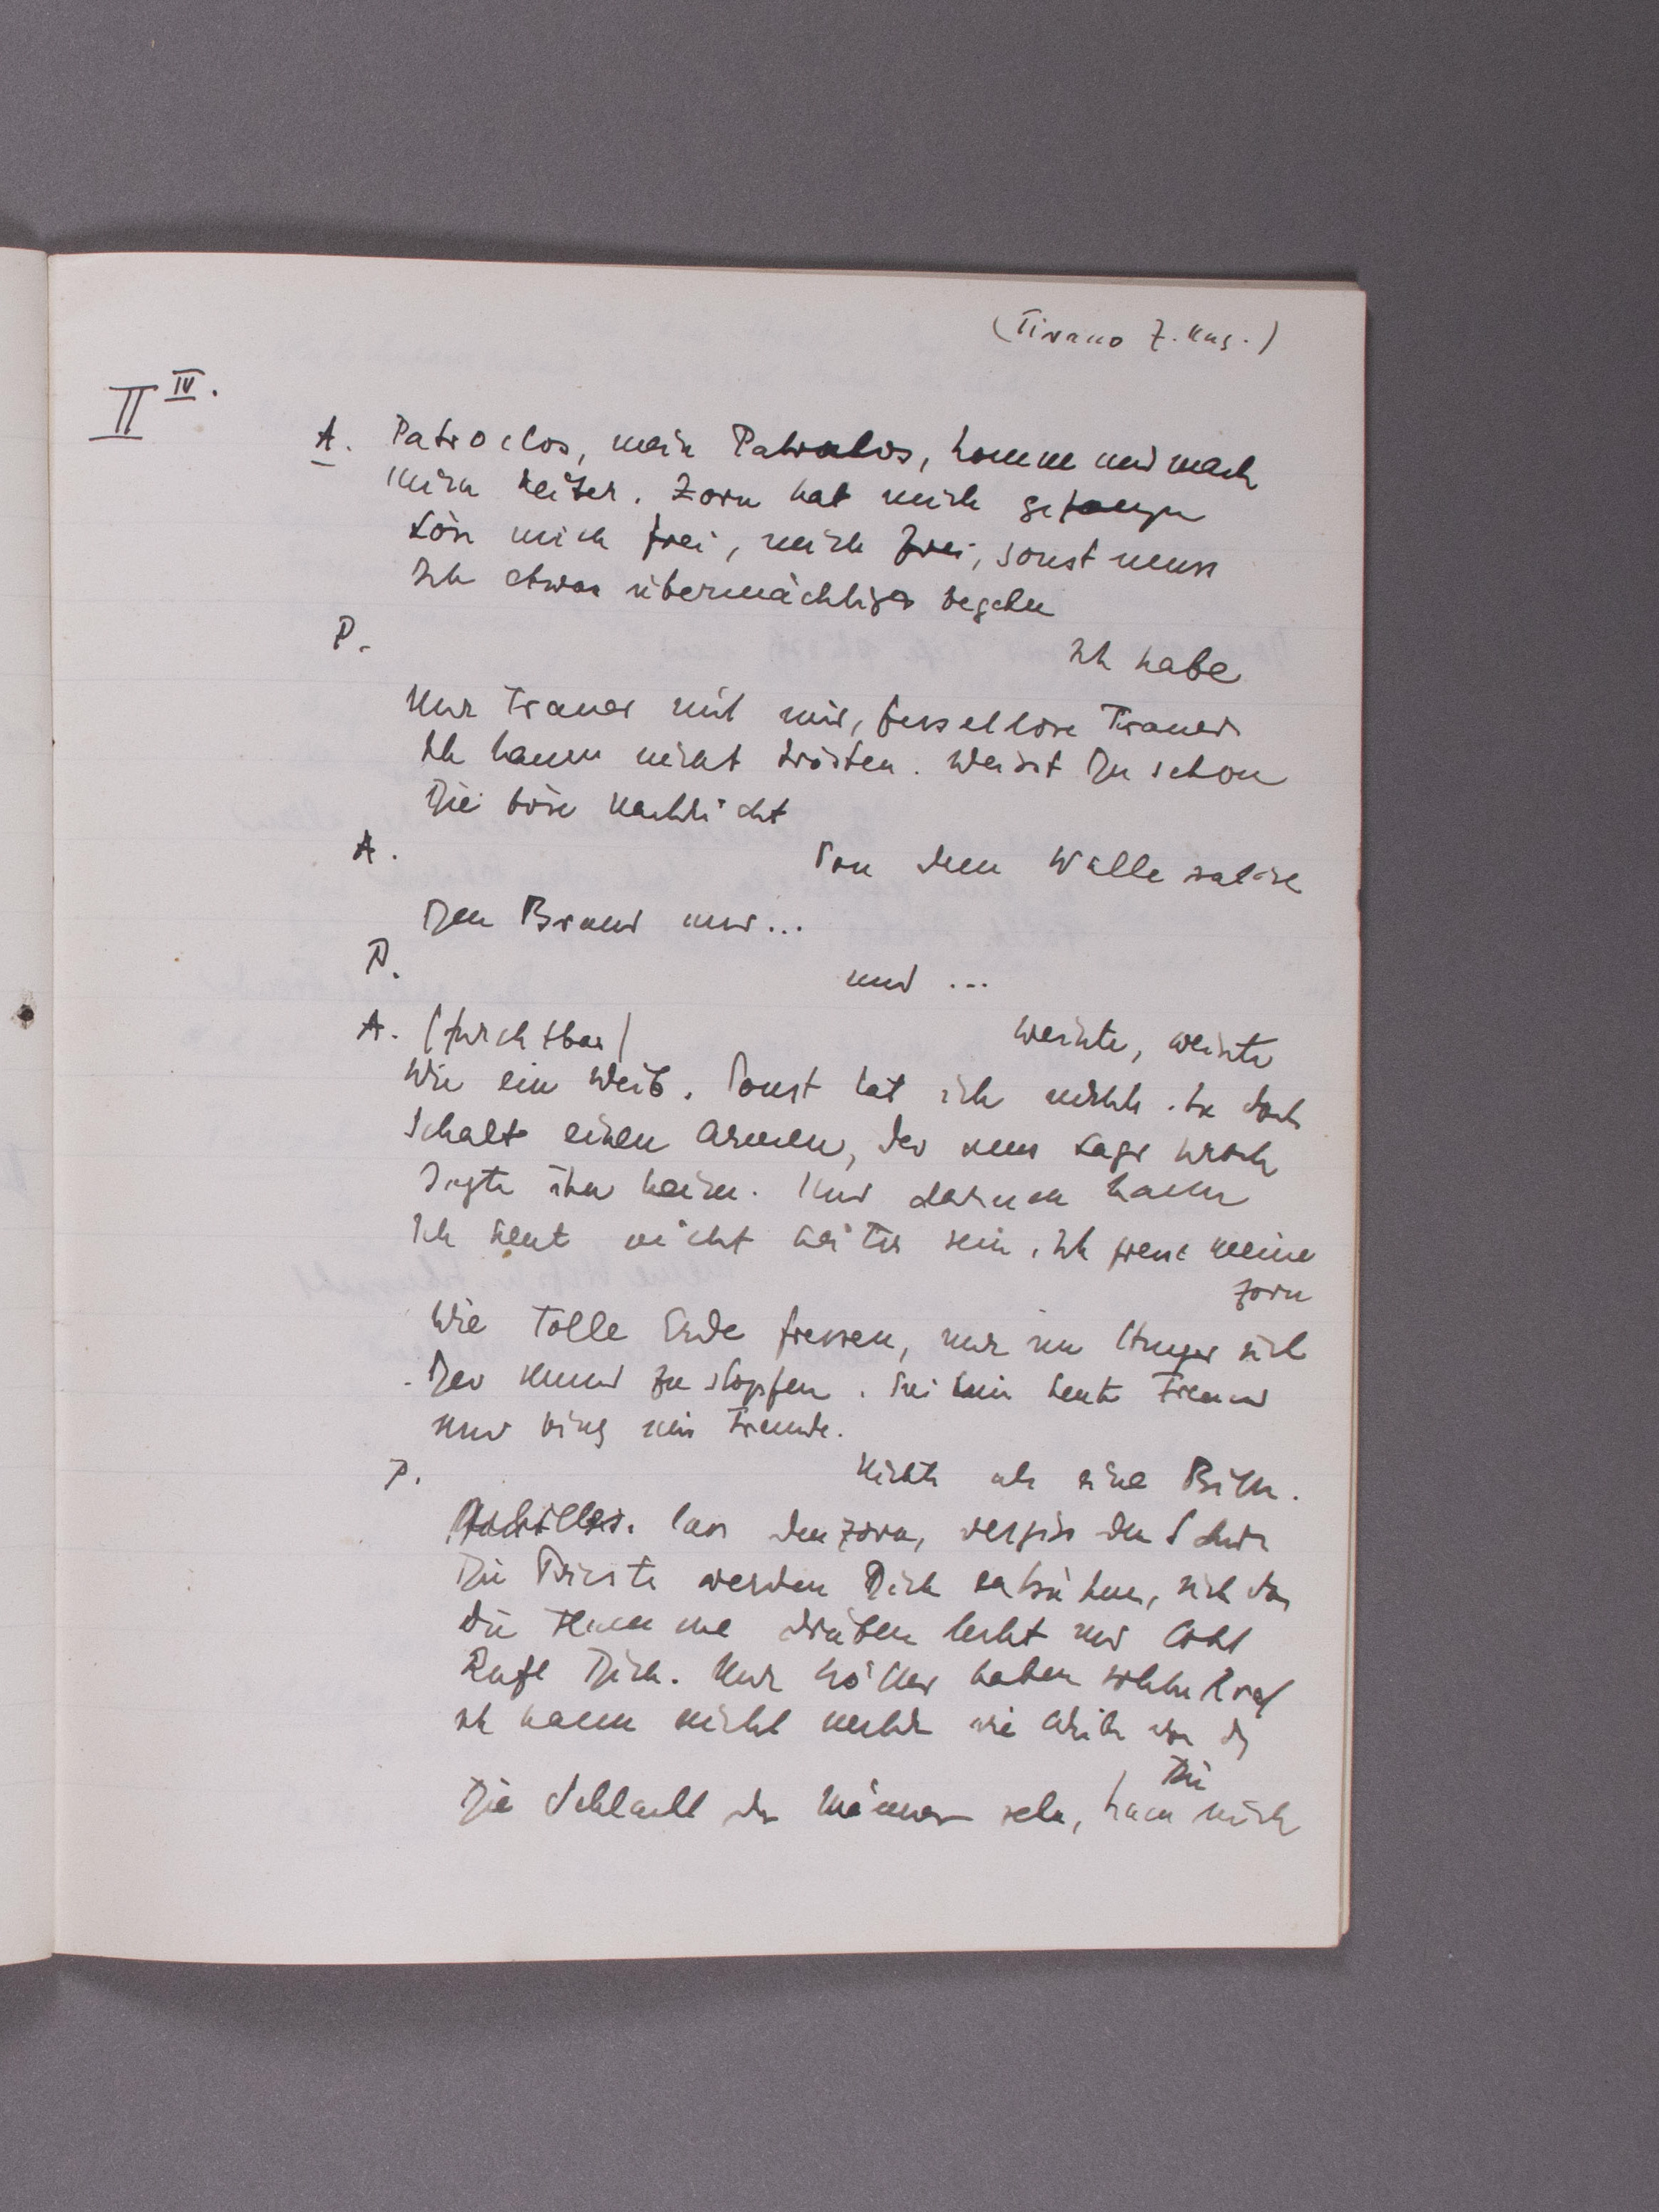 (Tirano 7. Aug.)
II IV.
A. Patroclos, mein Patroklos, komm und mach
mich heiter. Zorn hat mich gefangen
Lös mich frei, mich frei, sonst muss
Ich etwas übermächtiges begehn
P. Ich habe
Nur Trauer mit mir, fessellose Trauer
Ich kann nicht trösten. Weisst Du schon
Die böse Nachricht
A. Von dem Walle sah ich
Den Brand und...
P. und ...
A. (furchtbar) weinte, weinte
Wie ein Weib. Sonst tat ich nichts. Ja doch
Schalt einen Armen, der zum Lager kroch
Jagte ihn heim. Und darum kann
Ich heut nicht heiter sein. Ich fress meine
Zorn
Wie Tolle Erde fressen, nur um Hunger sich
Den Mund zu stopfen. Sei mir heute Freund
Und bring mir Freude.
P. Nichts als eine Bitte.
Achilles. Lass den Zorn, vergiss den Schwur
Die Priester werden Dich entsühnen, sieh das
die Flamme drüben lecht und loht
Ruft Dich. Nur Götter haben solchen Ruf
ich kann nicht mehr wie Weiber von
Die Schlacht der Männer sehn, kann mich
Die